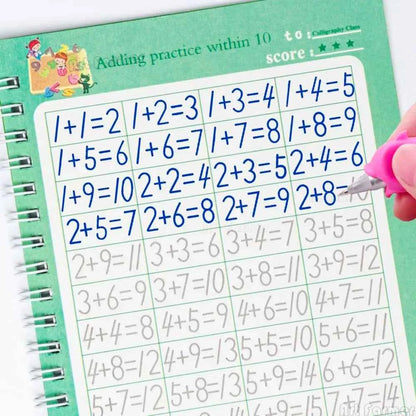 Adding practice within 10
to: Calligraphy Class
score: ★ ★ ★
1+1=2 1+2=3 1+3=4 1+4=5
1+5=6 1+6=7 1+7=8 1+8=9
1+9=10 2+2=4 2+3=5 2+4=6
2+5=7 2+6=8 2+7=9 2+8=10
2+9=11 3+3=6 3+4=7 3+5=8
3+6=9 3+7=10 3+8=11 3+9=12
4+4=8 4+5=9 4+6=10 4+7=11
4+8=12 4+9=13 5+5=10 5+6=11
5+7=12 5+8=13 5+9=14 6+6=12